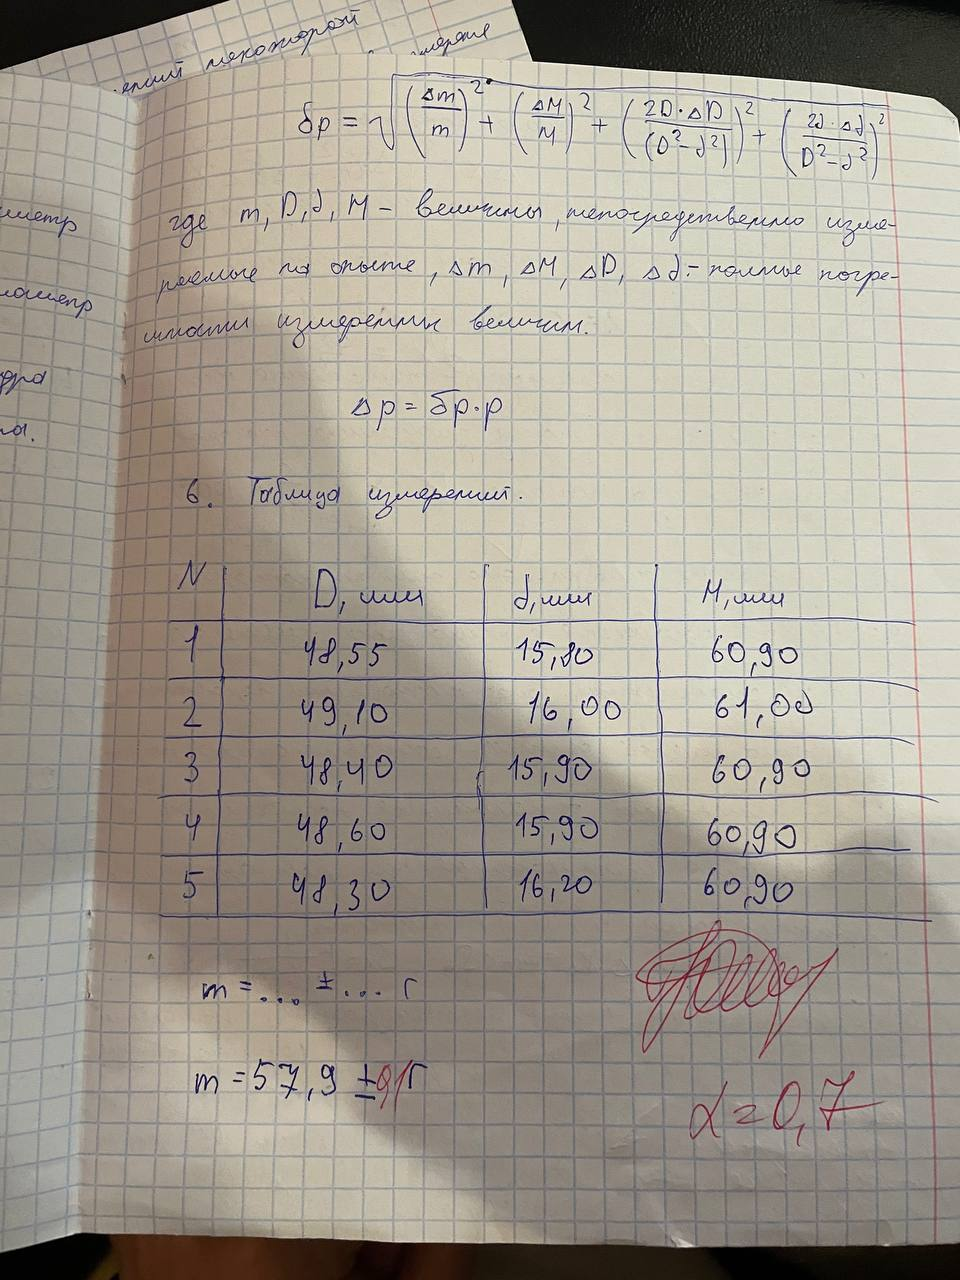 некоторой
δρ = √((Δm/m)² + (ΔH/H)² + (2D·ΔD/(D²-d²))² + (2d·Δd/D²-d²)²)
где m, D, d, H - величины, непосредственно изме-
ряемые на опыте, Δm, ΔH, ΔD, Δd - полные погре-
шности измеренных величин.
Δρ = δρ·ρ
6. Таблица измерений.
N D, мм d, мм H, мм
1 48,55 15,80 60,90
2 49,10 16,00 61,00
3 48,40 15,90 60,90
4 48,60 15,90 60,90
5 48,30 16,20 60,90
m = ... ± ... г
m = 57,9 ± 0,1 г
α = 0,7